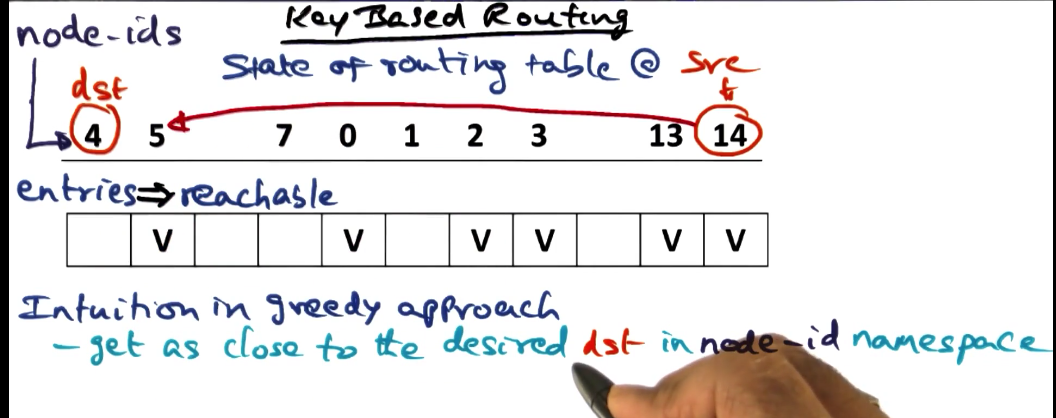 Key Based Routing
node-ids
State of routing table @ src
dst
4 5 7 0 1 2 3 13 14
entries⇒reachable
V V V V V V
Intuition in greedy approach
- get as close to the desired dst in node-id namespace